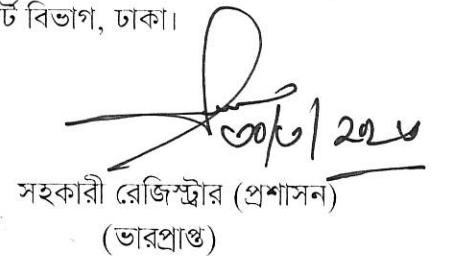 র্ট বিভাগ, ঢাকা।
সহকারী রেজিস্ট্রার (প্রশাসন)
(ভারপ্রাপ্ত)